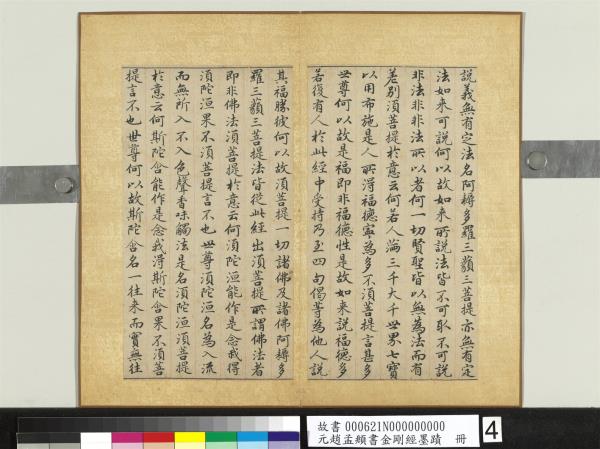 說義無有定法名阿耨多羅三藐三菩提亦無有定
法如來可說何以故如來所說法皆不可取不可說
非法非非法所以者何一切賢聖皆以無為法而有
差別須菩提於意云何若人滿三千大千世界七寶
以用布施是人所得福德寧為多不須菩提言甚多
世尊何以故是福即非福德性是故如來說福德多
若復有人於此經中受持乃至四句偈等為他人說
其福勝彼何以故須菩提一切諸佛及諸佛阿耨多
羅三藐三菩提法皆從此經出須菩提所謂佛法者
即非佛法須菩提於意云何須陀洹能作是念我得
須陀洹果不須菩提言不也世尊須陀洹名為入流
而無所入不入色聲香味觸法是名須陀洹須菩提
於意云何斯陀含能作是念我得斯陀含果不須菩
提言不也世尊何以故斯陀含名一往來而實無往
故書 000621N000000000
元趙孟頫書金剛經墨蹟 冊
4